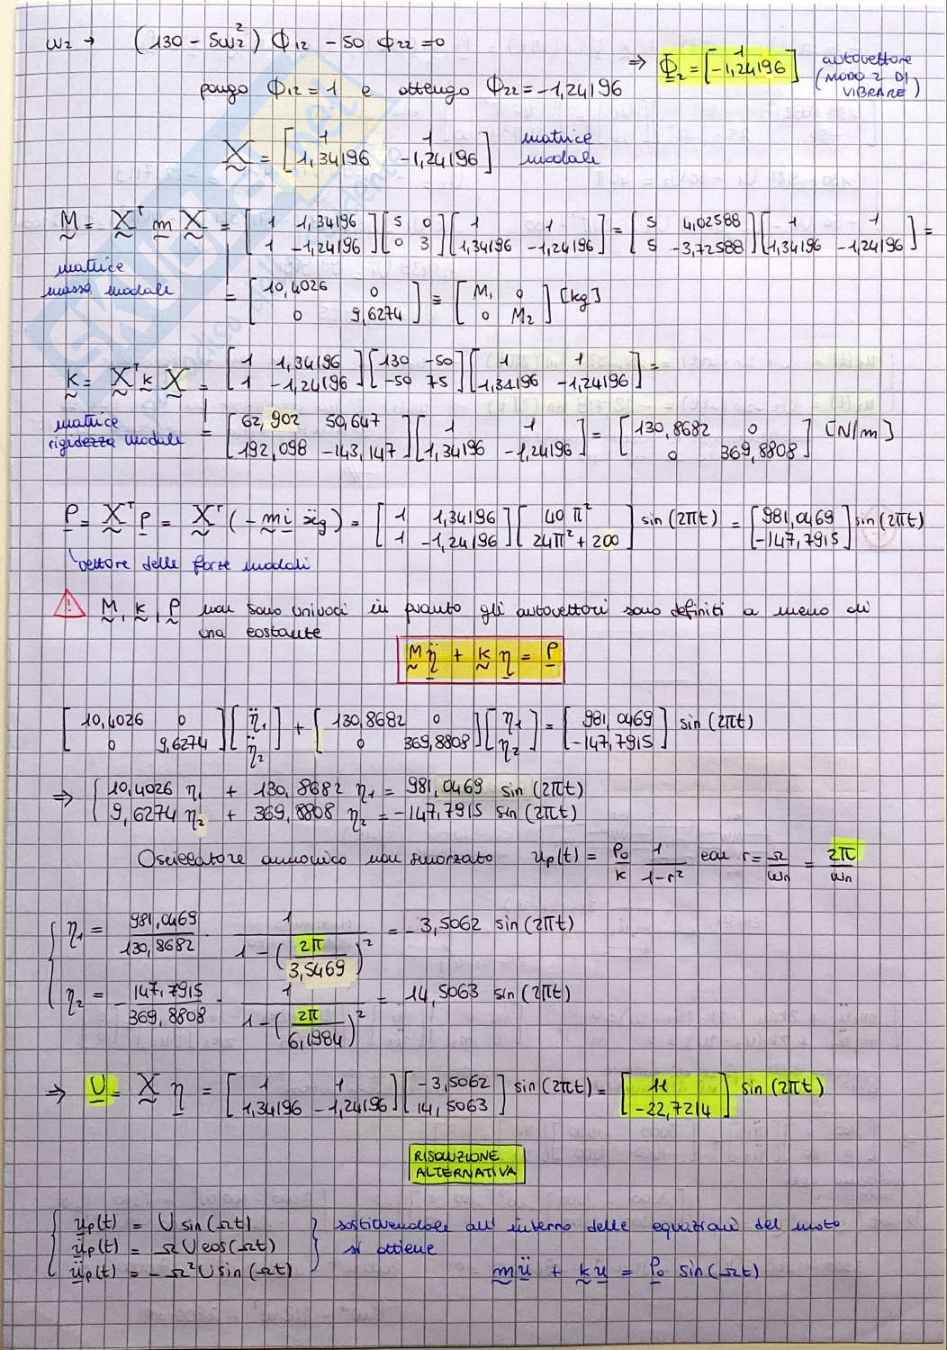 ω₂ → (130 - 5ω₂²) Φ₁₂ - 50 Φ₂₂ = 0
pongo Φ₁₂ = 1 e ottengo Φ₂₂ = -1,24196
⇒ Φ₂ = [1 ; -1,24196] autovettore
(MODO 2 DI
VIBRARE)
X = [1 1 ; 1,34196 -1,24196] matrice
modale
M = Xᵀ m X = [1 1,34196 ; 1 -1,24196] [5 0 ; 0 3] [1 1 ; 1,34196 -1,24196] = [5 4,02588 ; 5 -3,72588] [1 1 ; 1,34196 -1,24196] =
matrice
massa modale
= [10,4026 0 ; 0 9,6274] ≡ [M₁ 0 ; 0 M₂] [kg]
K = Xᵀ k X = [1 1,34196 ; 1 -1,24196] [130 -50 ; -50 75] [1 1 ; 1,34196 -1,24196] =
matrice
rigidezza modale
= [62,902 50,647 ; 192,098 -143,147] [1 1 ; 1,34196 -1,24196] = [130,8682 0 ; 0 369,8808] [N/m]
P = Xᵀ p = Xᵀ (- m i ẍg) = [1 1,34196 ; 1 -1,24196] [40π² ; 24π² + 200] sin(2πt) = [981,0469 ; -147,7915] sin(2πt)
vettore delle forze modali
! M, K, P non sono univoci in quanto gli autovettori sono definiti a meno di
una costante
M η̈ + K η = P
[10,4026 0 ; 0 9,6274] [η̈₁ ; η̈₂] + [130,8682 0 ; 0 369,8808] [η₁ ; η₂] = [981,0469 ; -147,7915] sin(2πt)
⇒ { 10,4026 η₁ + 130,8682 η₁ = 981,0469 sin(2πt)
9,6274 η₂ + 369,8808 η₂ = -147,7915 sin(2πt)
Oscillatore armonico non smorzato up(t) = P₀/K 1/(1-r²) con r = Ω/ωn = 2π/ωn
η₁ = 981,0469/130,8682 · 1/(1-(2π/3,5469)²) = -3,5062 sin(2πt)
η₂ = -147,7915/369,8808 · 1/(1-(2π/6,1984)²) = 14,5063 sin(2πt)
⇒ U = X η = [1 1 ; 1,34196 -1,24196] [-3,5062 ; 14,5063] sin(2πt) = [11 ; -22,7214] sin(2πt)
RISOLUZIONE
ALTERNATIVA
{ up(t) = U sin(Ωt)
u̇p(t) = ΩU cos(Ωt)
üp(t) = -Ω²U sin(Ωt) }
sostituendole all'interno delle equazioni del moto
si ottiene
m ü + k u = P₀ sin(Ωt)